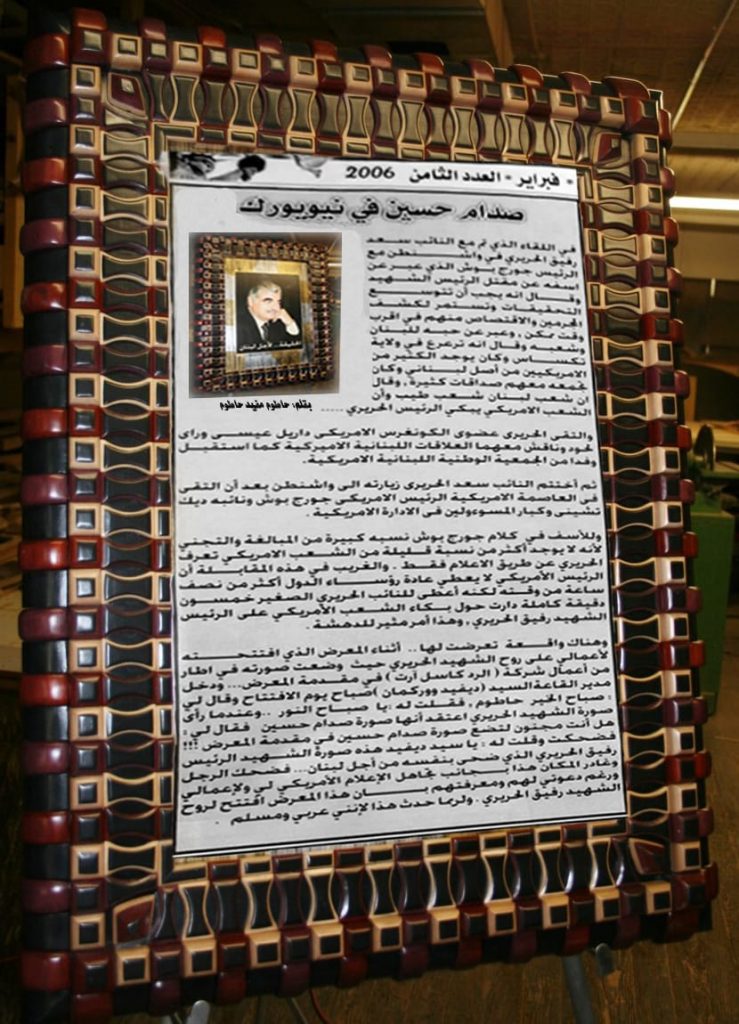 * فبراير * العدد الثامن 2006
صدام حسين في نيويورك
في اللقاء الذي تم مع النائب سعد
رفيق الحريري في واشنطن مع
الرئيس جورج بوش الذي عبر عن
اسفه عن مقتل الرئيس الشهيد
وقال انه يجب أن تتوسع
التحقيقات وتستمر لكشف
المجرمين والاقتصاص منهم في اقرب
وقت ممكن , وعبر عن حبه للبنان
وشعبه وقال انه ترعرع في ولاية
تكساس وكان يوجد الكثير من
الامريكيين من أصل لبناني وكان
تجمعه معهم صداقات كثيرة , وقال
ان شعب لبنان شعب طيب وأن
الشعب الامريكي يبكي الرئيس الحريري .....
الحقيقة.. لأجل لبنان
بقلم: حاطوم مفيد حاطوم
والتقى الحريرى عضوى الكونغرس الامريكى داريل عيسى وراى
لحود وناقش معهما العلاقات اللبنانية الاميركية كما استقبل
وفدا من الجمعية الوطنية اللبنانية الامريكية.
ثم أختتم النائب سعد الحريرى زيارته الى واشنطن بعد أن التقى
فى العاصمة الامريكية الرئيس الامريكى جورج بوش ونائبه ديك
تشينى وكبار المسوءولين فى الادارة الامريكية .
وللأسف في كلام جورج بوش نسبه كبيرة من المبالغة والتجني
لأنه لا يوجد أكثر من نسبة قليلة من الشعب الامريكي تعرف
الحريري عن طريق الاعلام فقط . والغريب في هذه المقابلة أن
الرئيس الأمريكي لا يعطي عادة رؤساء الدول أكثر من نصف
ساعة من وقته لكنه أعطى للنائب الحريرى الصغير خمسون
دقيقة كاملة دارت حول بكاء الشعب الأمريكي على الرئيس
الشهيد رفيق الحريري , وهذا أمر مثير للدهشة .
وهناك واقعة تعرضت لها .. أثناء المعرض الذي افتتحته
لأعمالي على روح الشهيد الحريري حيث وضعت صورته في اطار
من أعمال شركة ( الرد كاسل آرت ) في مقدمة المعرض... ودخل
مدير القاعة السيد (ديفيد ووركمان )صباح يوم الافتتاح وقال لي
: صباح الخير حاطوم , فقلت له :يا صباح النور ..وعندما رأى
صورة الشهيد الحريري أعتقد أنها صورة صدام حسين فقال لي :
هل أنت مجنون لتضع صورة صدام حسين في مقدمة المعرض !!!
فضحكت وقلت له : يا سيد ديفيد هذه صورة الشهيد الرئيس
رفيق الحريري الذي ضحى بنفسه من أجل لبنان... فضحك الرجل
وغادر المكان هذا بجانب تجاهل الإعلام الأمريكي لي ولإعمالي
ورغم دعوتي لهم ومعرفتهم بان هذا المعرض افتتح لروح
الشهيد رفيق الحريري . ولربما حدث هذا لإنني عربي ومسلم .